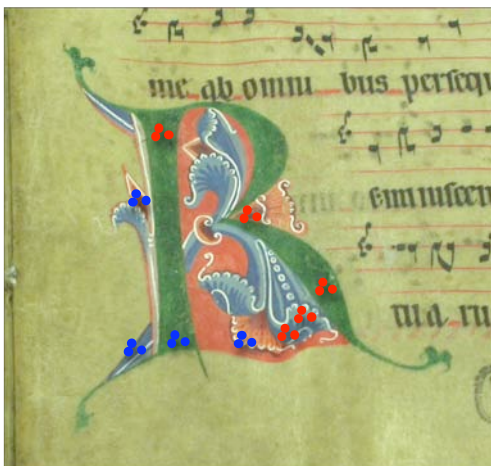 me ab omni bus persequ
Reminiscer
tu a ru